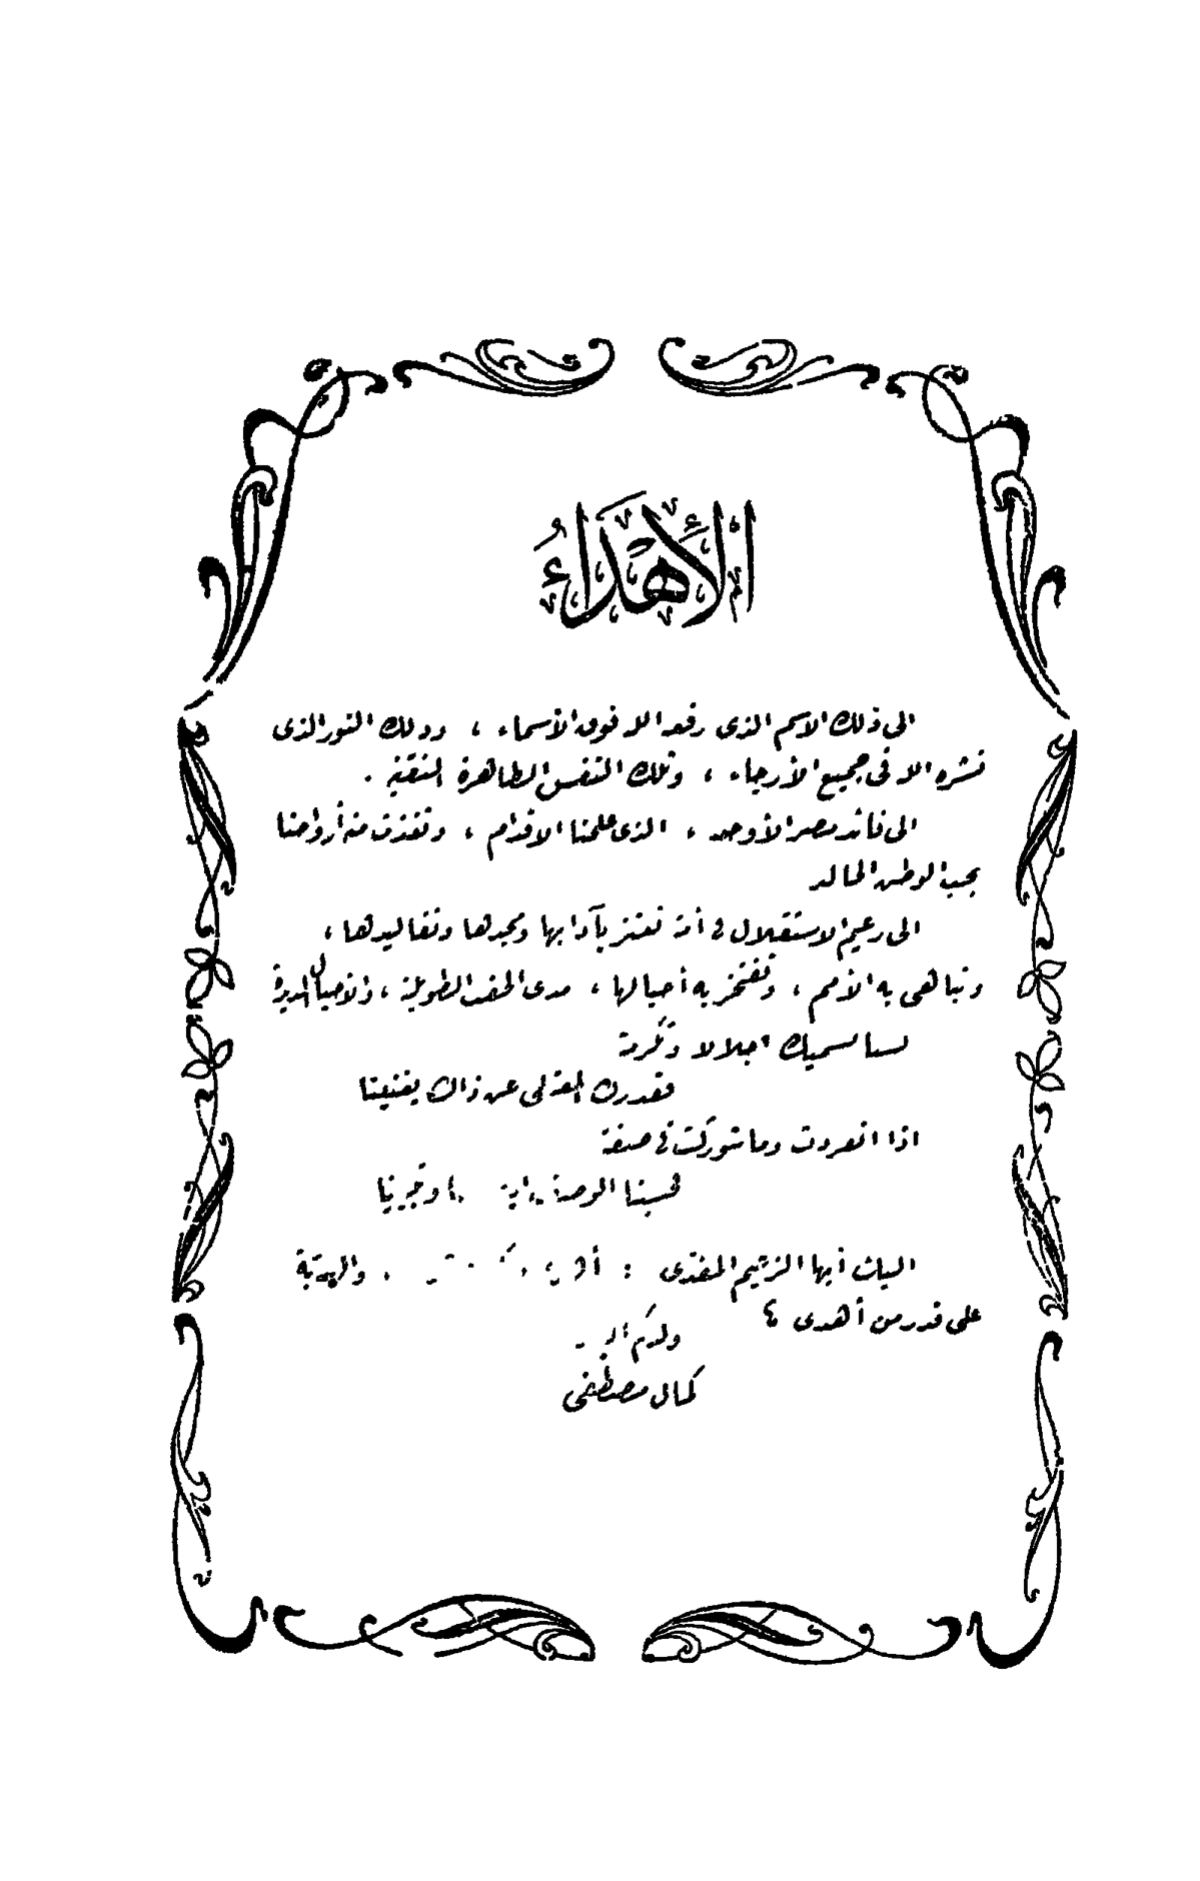 الإهداء
الى ذلك الاسم الذى رفعه الله فوق الأسماء ، وذلك النور الذى
نشره الله فى جميع الأرجاء ، وتلك النفس الطاهرة النقية .
الى قائد مصر الأوحد ، الذى علمنا الاقدام ، وتغذت منه أرواحنا
بحب الوطن الخالد
الى زعيم الاستقلال فى أمة تعتز بآدابها ومجدها وتقاليدها ،
وتباهى به الأمم ، وتفتخر به أجيالها ، مدى الحقب الطويلة ، والأجيال المديدة
لسنا نسميك اجلالا وتكرمة
فقدرك المعتلى عن ذاك يغنينا
اذا انفردت وما شوركت فى صفة
فحسبنا الوصف
اليك أيها الزعيم المفدى : والهدية
على قدر من أهدى ؟
ولدكم
كمال مصطفى